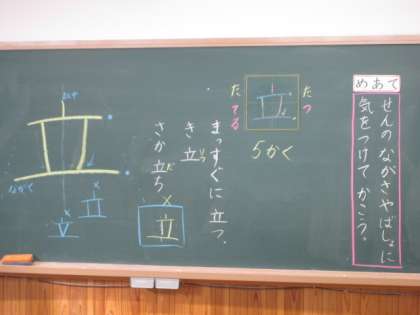 めあて
せんのながさやばしょに
気をつけてかこう。
たつ
立
たてる
5かく
まっすぐに立つ。
き立りつ
さか立だち
×
立
ながく
×
×